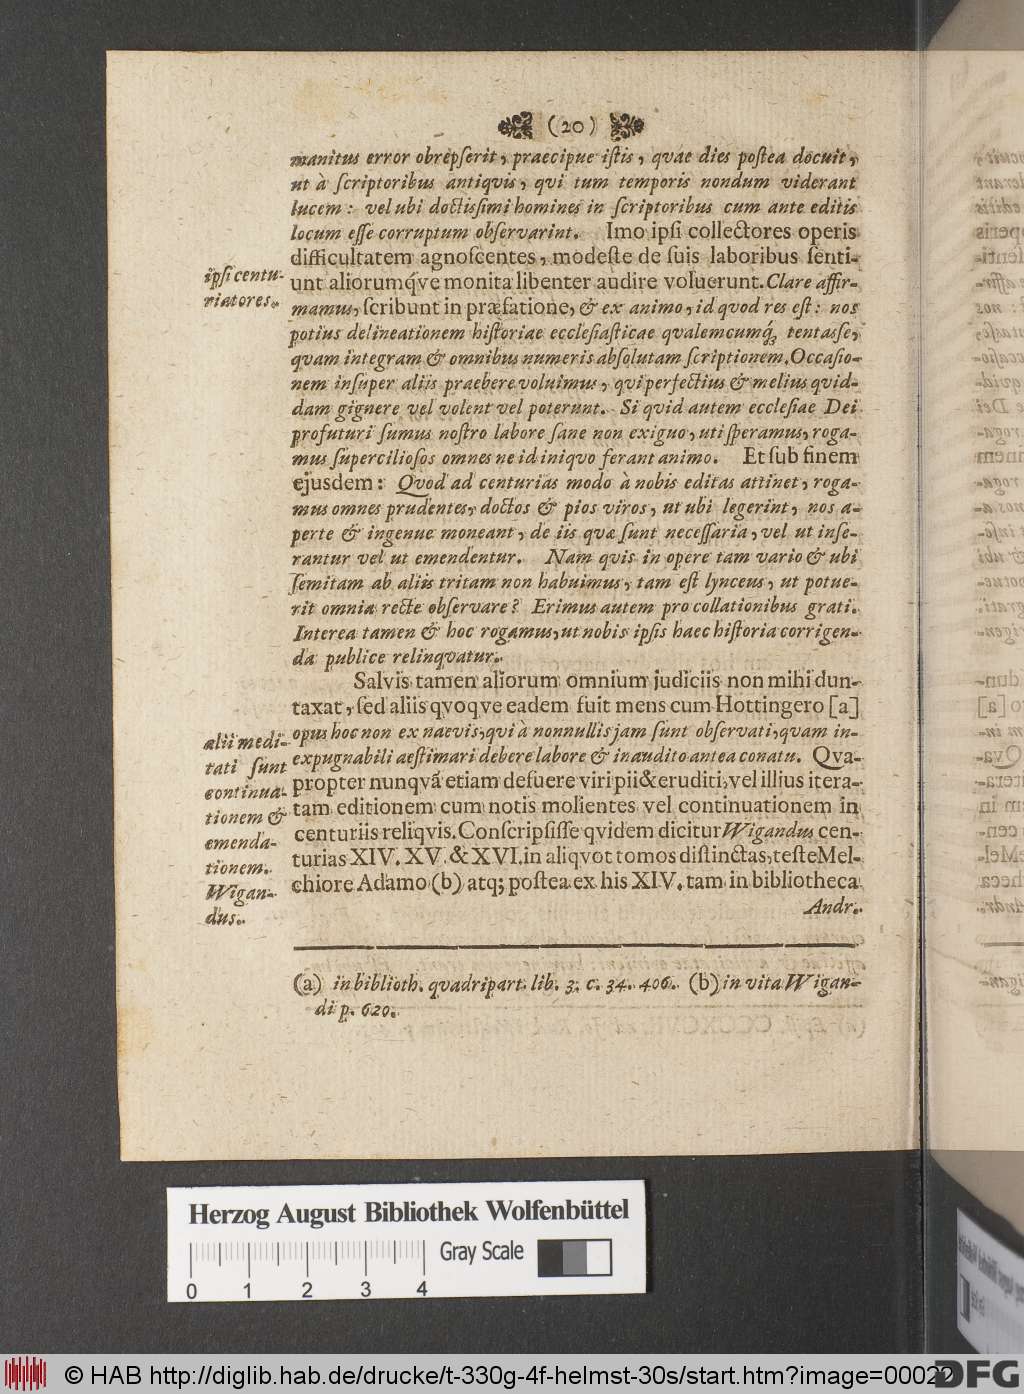 (20)
manitus error obrepſerit, praecipue iſtis, qvae dies poſtea docuit,
ut à ſcriptoribus antiqvis, qvi tum temporis nondum viderant
lucem: vel ubi doctiſsimi homines in ſcriptoribus cum ante editis
locum eſſe corruptum obſervarint. Imo ipſi collectores operis
difficultatem agnoſcentes, modeſte de ſuis laboribus ſenti-
unt aliorumqve monita libenter audire voluerunt. Clare affir-
mamus, ſcribunt in præfatione, & ex animo, id quod res eſt: nos
potius delineationem hiſtoriae eccleſiaſticae qvalemcumq́; tentaſſe,
qvam integram & omnibus numeris abſolutam ſcriptionem. Occaſio-
nem inſuper aliis praebere voluimus, qvi perfectius & melius qvid-
dam gignere vel volent vel poterunt. Si qvid autem eccleſiae Dei
profuturi ſumus noſtro labore ſane non exiguo, uti ſperamus, roga-
mus ſupercilioſos omnes ne id iniqvo ferant animo. Et ſub finem
ejusdem: Qvod ad centurias modo à nobis editas attinet, roga-
mus omnes prudentes, doctos & pios viros, ut ubi legerint, nos a-
perte & ingenue moneant, de iis quæ ſunt neceſſaria, vel ut inſe-
rantur vel ut emendentur. Nam qvis in opere tam vario & ubi
ſemitam ab aliis tritam non habuimus, tam eſt lynceus, ut potue-
rit omnia recte obſervare? Erimus autem pro collationibus grati.
Interea tamen & hoc rogamus, ut nobis ipſis haec hiſtoria corrigen-
da publice relinqvatur.
ipſi centu-
riatores.
Salvis tamen aliorum omnium judiciis non mihi dun-
taxat, ſed aliis qvoqve eadem fuit mens cum Hottingero [a]
opus hoc non ex naevis, qvi à nonnullis jam ſunt obſervati, qvam in-
expugnabili aeſtimari debere labore & inaudito antea conatu. Qva-
propter nunqvã etiam defuere viri pii & eruditi, vel illius itera-
tam editionem cum notis molientes vel continuationem in
centuriis reliqvis. Conſcripſiſſe qvidem dicitur Wigandus cen-
turias XIV. XV. & XVI. in aliqvot tomos diſtinctas, teſte Mel-
chiore Adamo (b) atq; poſtea ex his XIV. tam in bibliotheca
Andr.
alii medi-
tati ſunt
continua-
tionem &
emenda-
tionem.
Wigan-
dus.
(a) in biblioth. quadripart. lib. 3. c. 34. 406. (b) in vita Wigan-
di p. 620.
Herzog August Bibliothek Wolfenbüttel
Gray Scale
0 1 2 3 4
© HAB http://diglib.hab.de/drucke/t-330g-4f-helmst-30s/start.htm?image=00022
DFG